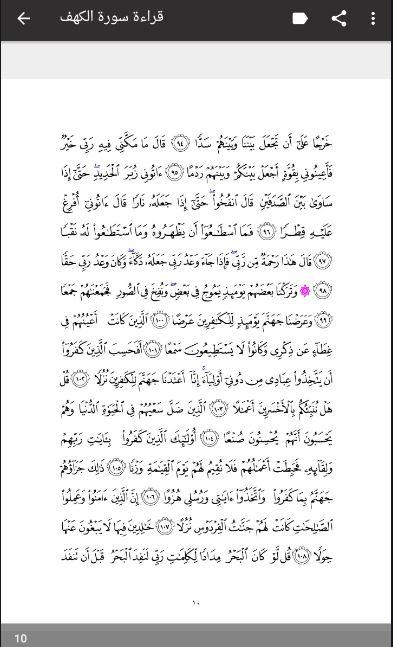 قراءة سورة الكهف
خَرْجًا عَلَىٰٓ أَن تَجْعَلَ بَيْنَنَا وَبَيْنَهُمْ سَدًّا ﴿٩٤﴾ قَالَ مَا مَكَّنِّى فِيهِ رَبِّى خَيْرٌ
فَأَعِينُونِى بِقُوَّةٍ أَجْعَلْ بَيْنَكُمْ وَبَيْنَهُمْ رَدْمًا ﴿٩٥﴾ ءَاتُونِى زُبَرَ ٱلْحَدِيدِ ۖ حَتَّىٰٓ إِذَا
سَاوَىٰ بَيْنَ ٱلصَّدَفَيْنِ قَالَ ٱنفُخُوا۟ ۖ حَتَّىٰٓ إِذَا جَعَلَهُۥ نَارًا قَالَ ءَاتُونِىٓ أُفْرِغْ
عَلَيْهِ قِطْرًا ﴿٩٦﴾ فَمَا ٱسْطَـٰعُوٓا۟ أَن يَظْهَرُوهُ وَمَا ٱسْتَطَـٰعُوا۟ لَهُۥ نَقْبًا
﴿٩٧﴾ قَالَ هَـٰذَا رَحْمَةٌ مِّن رَّبِّى ۖ فَإِذَا جَآءَ وَعْدُ رَبِّى جَعَلَهُۥ دَكَّآءَ ۖ وَكَانَ وَعْدُ رَبِّى حَقًّا
﴿٩٨﴾ ۞ وَتَرَكْنَا بَعْضَهُمْ يَوْمَئِذٍ يَمُوجُ فِى بَعْضٍ ۖ وَنُفِخَ فِى ٱلصُّورِ فَجَمَعْنَـٰهُمْ جَمْعًا
﴿٩٩﴾ وَعَرَضْنَا جَهَنَّمَ يَوْمَئِذٍ لِّلْكَـٰفِرِينَ عَرْضًا ﴿١٠٠﴾ ٱلَّذِينَ كَانَتْ أَعْيُنُهُمْ فِى
غِطَآءٍ عَن ذِكْرِى وَكَانُوا۟ لَا يَسْتَطِيعُونَ سَمْعًا ﴿١٠١﴾ أَفَحَسِبَ ٱلَّذِينَ كَفَرُوٓا۟
أَن يَتَّخِذُوا۟ عِبَادِى مِن دُونِىٓ أَوْلِيَآءَ ۚ إِنَّآ أَعْتَدْنَا جَهَنَّمَ لِلْكَـٰفِرِينَ نُزُلًا ﴿١٠٢﴾ قُلْ
هَلْ نُنَبِّئُكُم بِٱلْأَخْسَرِينَ أَعْمَـٰلًا ﴿١٠٣﴾ ٱلَّذِينَ ضَلَّ سَعْيُهُمْ فِى ٱلْحَيَوٰةِ ٱلدُّنْيَا وَهُمْ
يَحْسَبُونَ أَنَّهُمْ يُحْسِنُونَ صُنْعًا ﴿١٠٤﴾ أُو۟لَـٰٓئِكَ ٱلَّذِينَ كَفَرُوا۟ بِـَٔايَـٰتِ رَبِّهِمْ
وَلِقَآئِهِۦ فَحَبِطَتْ أَعْمَـٰلُهُمْ فَلَا نُقِيمُ لَهُمْ يَوْمَ ٱلْقِيَـٰمَةِ وَزْنًا ﴿١٠٥﴾ ذَٰلِكَ جَزَآؤُهُمْ
جَهَنَّمُ بِمَا كَفَرُوا۟ وَٱتَّخَذُوٓا۟ ءَايَـٰتِى وَرُسُلِى هُزُوًا ﴿١٠٦﴾ إِنَّ ٱلَّذِينَ ءَامَنُوا۟ وَعَمِلُوا۟
ٱلصَّـٰلِحَـٰتِ كَانَتْ لَهُمْ جَنَّـٰتُ ٱلْفِرْدَوْسِ نُزُلًا ﴿١٠٧﴾ خَـٰلِدِينَ فِيهَا لَا يَبْغُونَ عَنْهَا
حِوَلًا ﴿١٠٨﴾ قُل لَّوْ كَانَ ٱلْبَحْرُ مِدَادًا لِّكَلِمَـٰتِ رَبِّى لَنَفِدَ ٱلْبَحْرُ قَبْلَ أَن تَنفَدَ
١٠
10